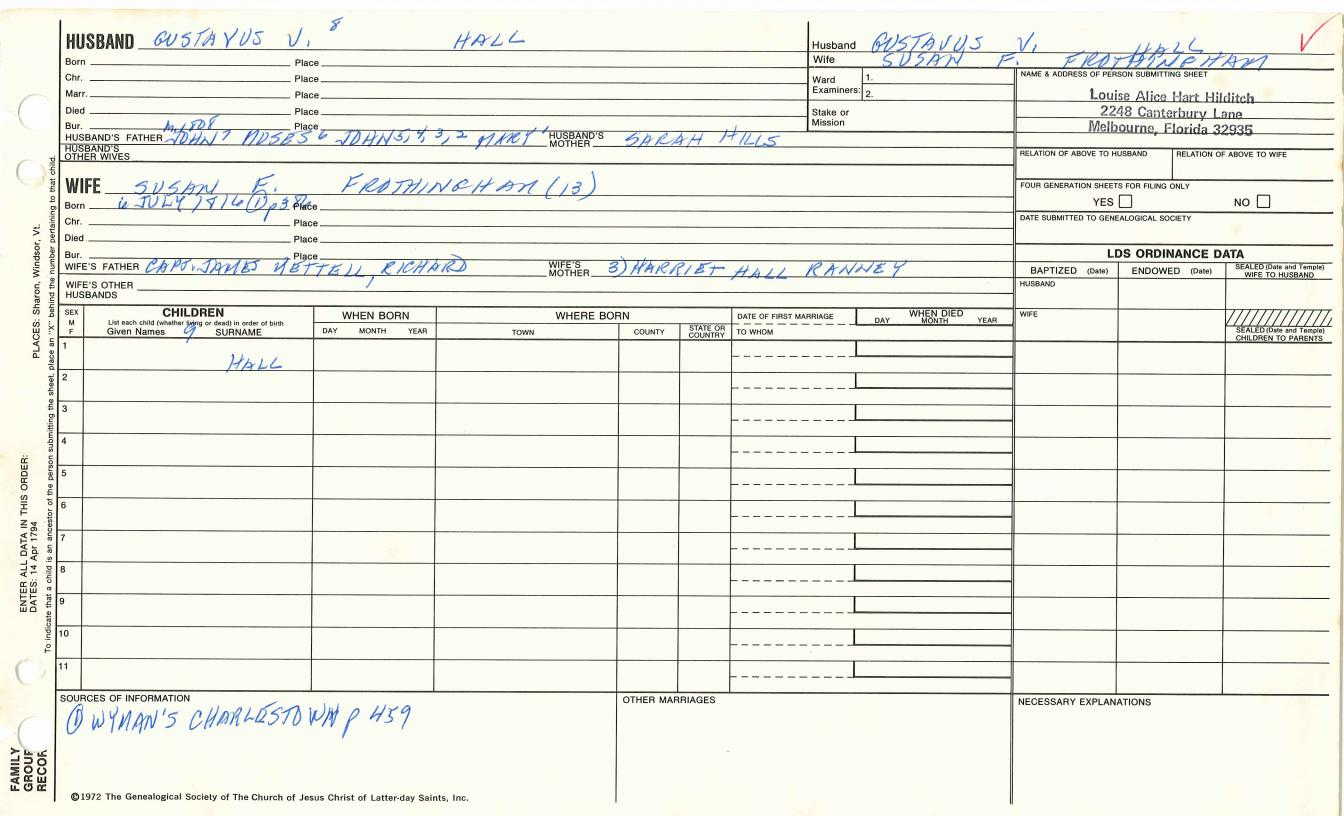 8
HUSBAND GUSTAVUS V. HALL
Born Place
Chr. Place
Marr. Place
Died Place
Bur. Place
m. 1808
HUSBAND'S FATHER JOHN 7 MOSES 6 JOHN 5, 4, 3, 2 MARY 1 HUSBAND'S MOTHER SARAH HILLS
HUSBAND'S OTHER WIVES
Husband GUSTAVUS V. HALL
Wife SUSAN F. FROTHINGHAM
Ward Examiners: 1.
2.
Stake or Mission
NAME & ADDRESS OF PERSON SUBMITTING SHEET
Louise Alice Hart Hilditch
2248 Canterbury Lane
Melbourne, Florida 32935
RELATION OF ABOVE TO HUSBAND RELATION OF ABOVE TO WIFE
FOUR GENERATION SHEETS FOR FILING ONLY
YES NO
DATE SUBMITTED TO GENEALOGICAL SOCIETY
WIFE SUSAN F. FROTHINGHAM (13)
Born 6 JULY 1816 (1) Place
Chr. Place
Died Place
Bur. Place
WIFE'S FATHER CAPT. JAMES KETTELL, RICHARD WIFE'S MOTHER 3) HARRIET HALL RANNEY
WIFE'S OTHER HUSBANDS
LDS ORDINANCE DATA
BAPTIZED (Date) ENDOWED (Date) SEALED (Date and Temple) WIFE TO HUSBAND
HUSBAND
WIFE
SEALED (Date and Temple) CHILDREN TO PARENTS
SEX M F
CHILDREN
List each child (whether living or dead) in order of birth
Given Names 9 SURNAME
WHEN BORN
DAY MONTH YEAR
WHERE BORN
TOWN COUNTY STATE OR COUNTRY
DATE OF FIRST MARRIAGE
TO WHOM
WHEN DIED
DAY MONTH YEAR
1
HALL
2
3
4
5
6
7
8
9
10
11
SOURCES OF INFORMATION
(1) WYMAN'S CHARLESTOWN p 459
OTHER MARRIAGES
NECESSARY EXPLANATIONS
©1972 The Genealogical Society of The Church of Jesus Christ of Latter-day Saints, Inc.
FAMILY GROUP RECOR
ENTER ALL DATA IN THIS ORDER:
DATES: 14 Apr 1794
PLACES: Sharon, Windsor, Vt.
To indicate that a child is an ancestor of the person submitting the sheet, place an "X" behind the number pertaining to that child.